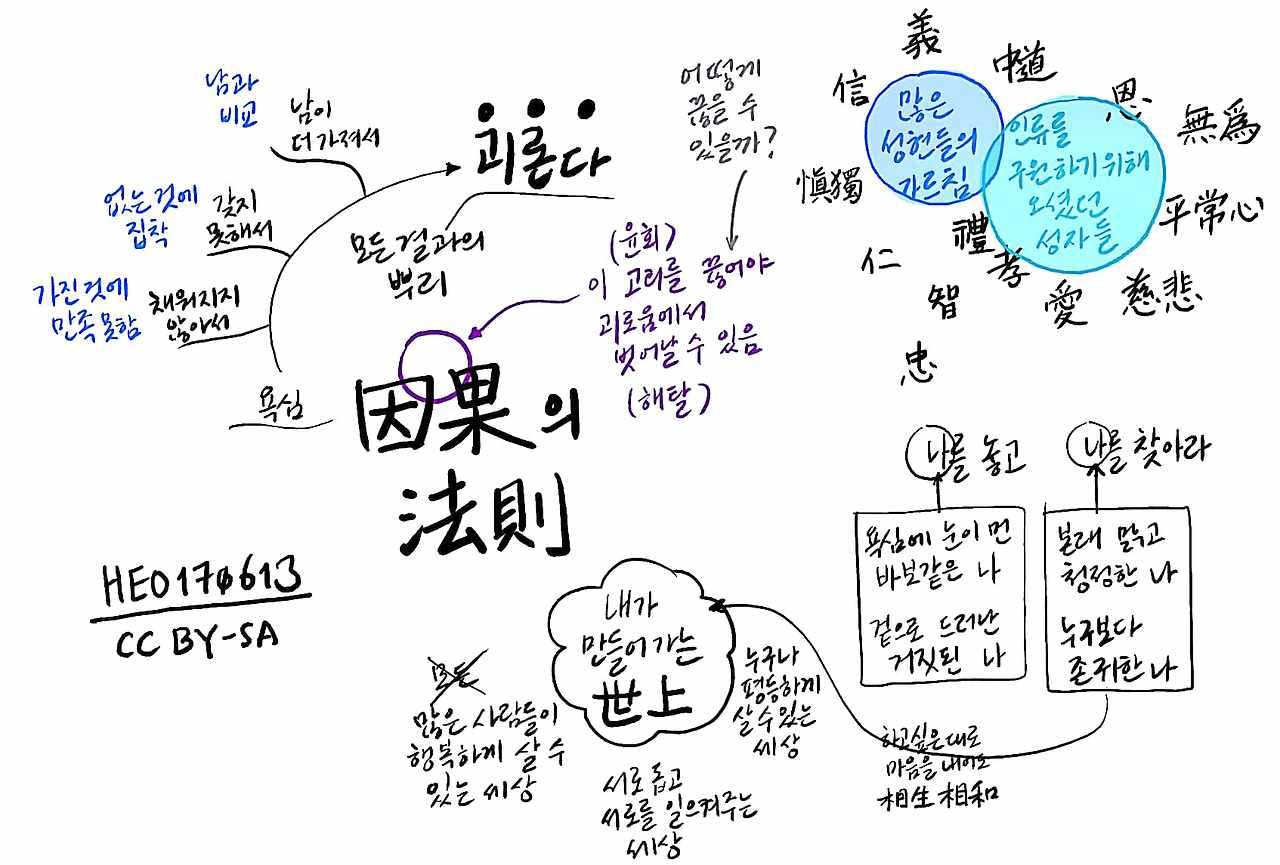 남과
비교
남이
더 가져서
없는 것에
집착
갖지
못해서
가진 것에
만족 못함
채워지지
않아서
욕심
괴론다
모든 결과의
뿌리
因果의
法則
어떻게
끊을 수
있을까?
(윤회)
이 고리를 끊어야
괴로움에서
벗어날 수 있음
(해탈)
義
信
中道
恩
無爲
愼獨
平常心
仁
禮
孝
智
愛
慈悲
忠
많은
성현들의
가르침
인류를
구원하기 위해
오셨던
성자들
나를 놓고
욕심에 눈이 먼
바보같은 나
겉으로 드러난
거짓된 나
나를 찾아라
본래 맑고
청정한 나
누구보다
존귀한 나
하고싶은대로
마음을 내어도
相生相和
내가
만들어가는
世上
누구나
평등하게
살 수 있는
세상
모든
많은 사람들이
행복하게 살 수
있는 세상
서로 돕고
서로를 일으켜주는
세상
HEO170613
CC BY-SA